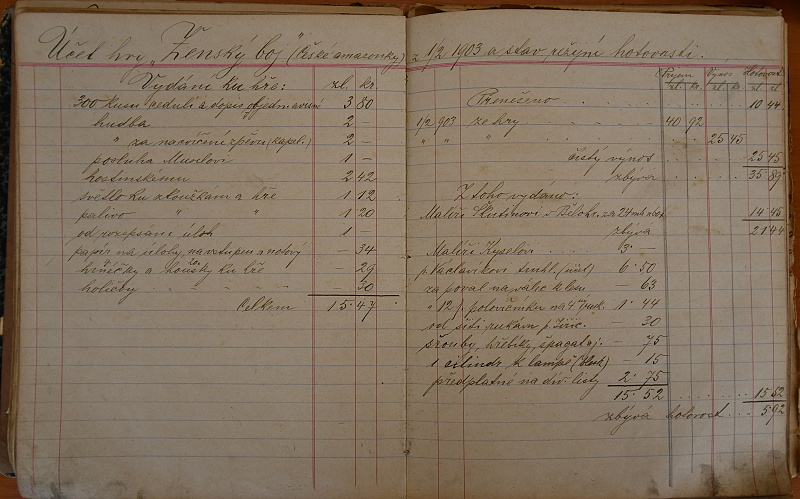 Účet hry „Ženský boj" (České amazonky) z 1/2 1903 a stav režijní hotovosti.
Vydání ku hře: zl. kr.
300 kusů cedulí a dopis objednavní 3 80
hudba 2 –
" za nacvičení zpěvu (kapel.) 2 –
posluha Muselovi 1 –
hostinskému 2 42
světlo ku zkouškám a hře 1 12
palivo " " 1 20
od rozepsání úloh 1 –
papír na úlohy, na vstupen. a notový – 34
hrníčky a housky ku hře – 29
holičky – 30
Celkem 15·47
Příjem Výnos Hotovost
zl. kr. zl. kr. zl. kr.
Přenešeno 10 44
1/2 903 ze hry 40 92
" " " 25 45
čistý výnos 25 45
zbývá 35 89
Z toho vydáno:
Malíři Škutinovi v Běloh. za 14 45
zbývá 21 44
Malíři Kyselovi 3 –
p. Václavíkovi truhl. 6·50
za poval na válce k lesu – 63
" 12 p. polovičníku na 1·44
od šití rukám p. Jiřič. – 30
šrouby, hřebíky, špagát aj. – 75
1 cilindr k lampě – 15
předplatné na div. listy 2·75
15·52 15 52
zbývá hotovost 5 92